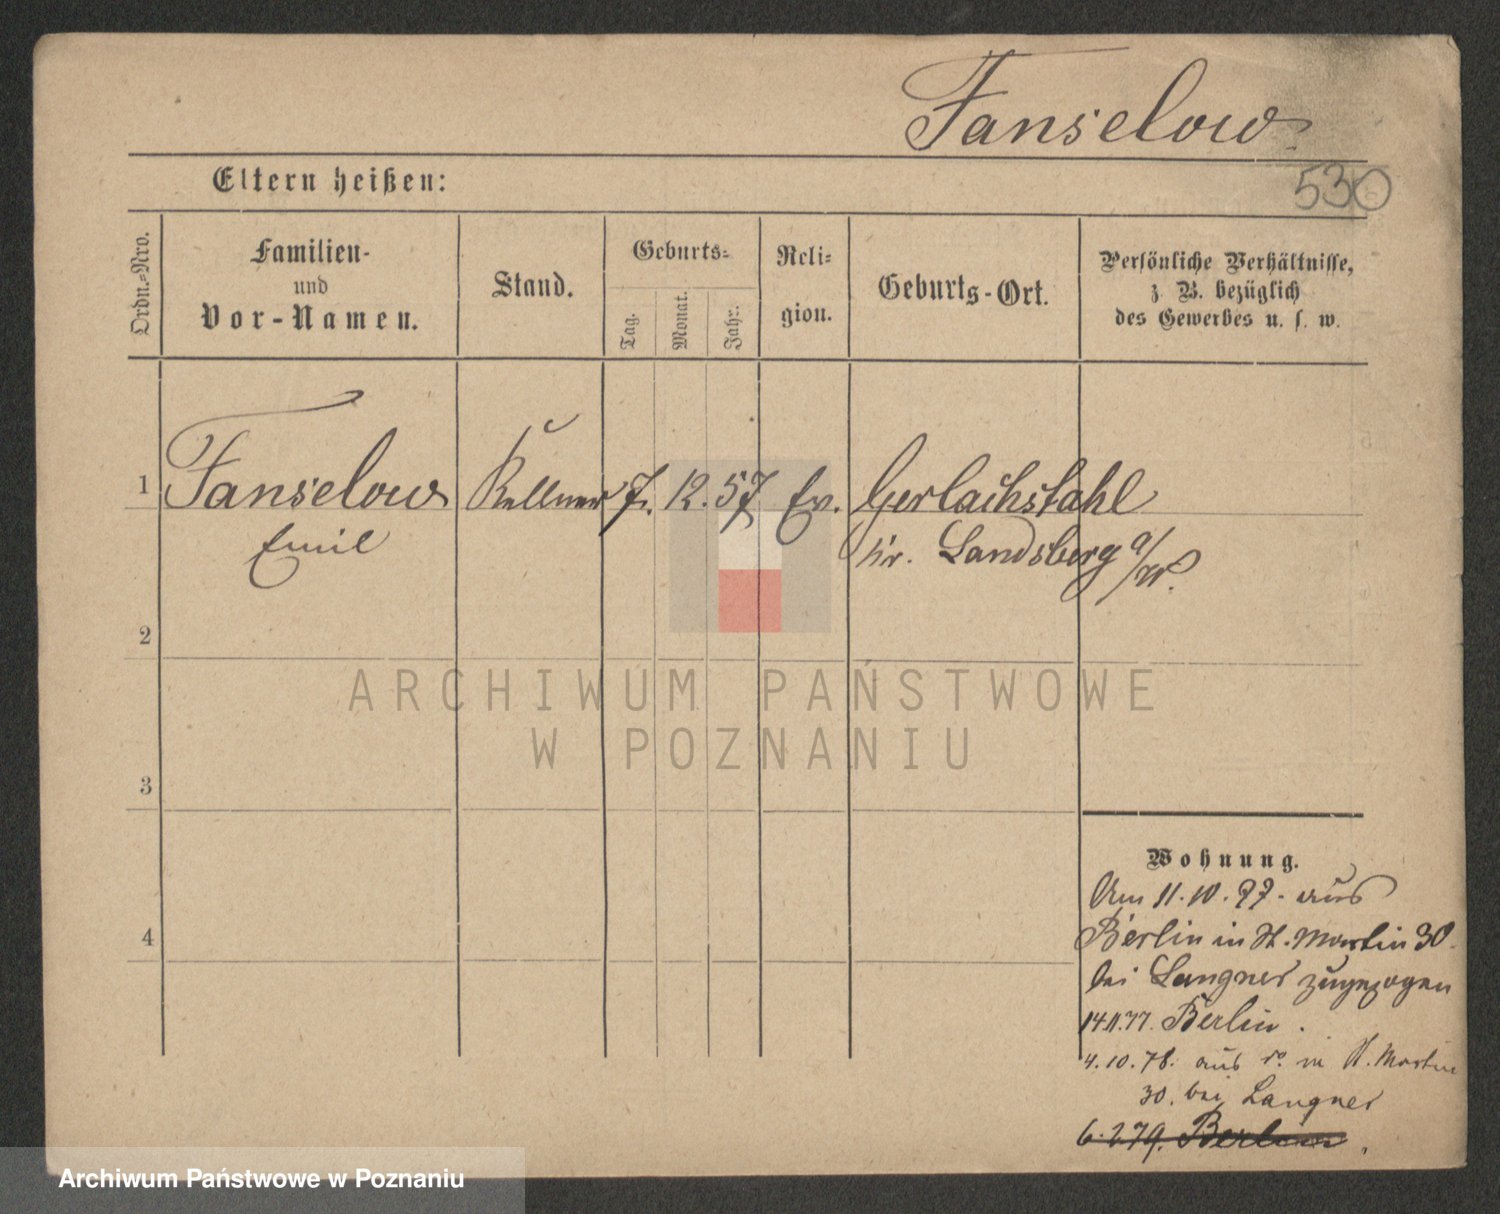 Fanselow
530
Eltern heißen:
Ordn.-Nro.
Familien-
und
Vor-Namen.
Stand.
Geburts-
Tag.
Monat.
Jahr.
Reli-
gion.
Geburts-Ort.
Persönliche Verhältnisse,
z. B. bezüglich
des Gewerbes u. s. w.
1 Fanselow Kellner 7. 12. 57 Ev. Gerlachsthal
Emil Kr. Landsberg a/W.
2
ARCHIWUM PAŃSTWOWE
W POZNANIU
3
4
Wohnung.
Am 11.10.77. aus
Berlin in St. Martin 30
bei Langner zugezogen
14.11.77. Berlin.
4.10.78. aus do. in St. Martin
30. bei Langner
6.2.79. Berlin
Archiwum Państwowe w Poznaniu